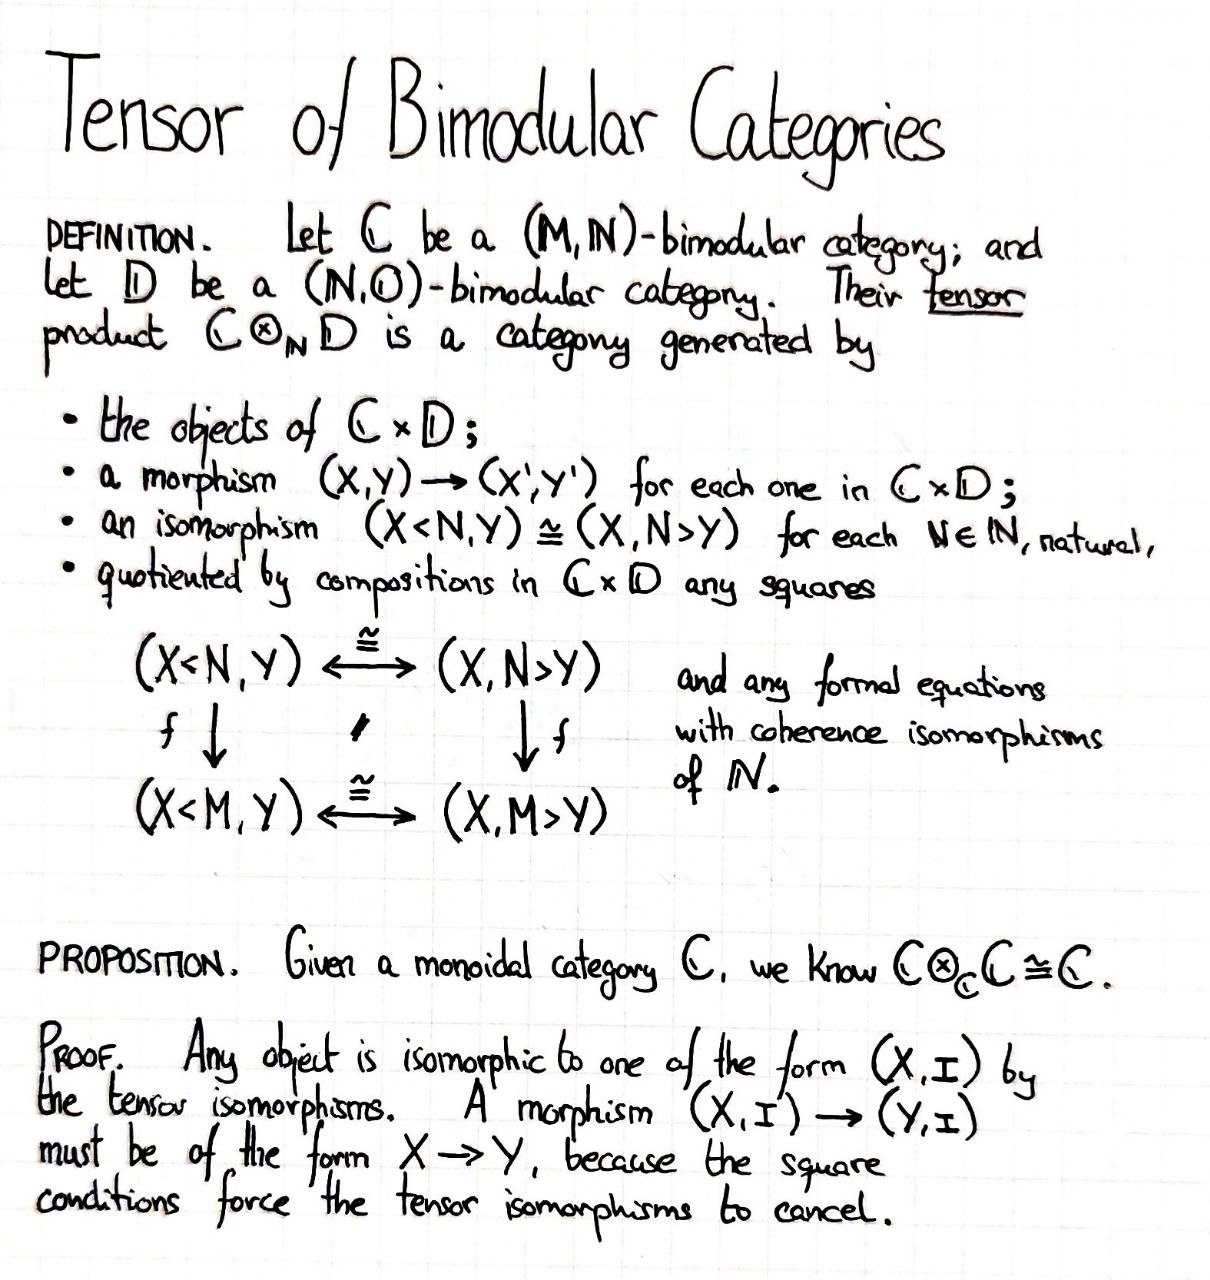 Tensor of Bimodular Categories
DEFINITION. Let ℂ be a (𝕄,ℕ)-bimodular category; and
let 𝔻 be a (ℕ,𝕆)-bimodular category. Their tensor
product ℂ⊗_ℕ 𝔻 is a category generated by
• the objects of ℂ×𝔻;
• a morphism (X,Y)→(X',Y') for each one in ℂ×𝔻;
• an isomorphism (X<N,Y)≅(X,N>Y) for each N∈ℕ, natural,
• quotiented by compositions in ℂ×𝔻 any squares
(X<N,Y) ≅ ⟷ (X,N>Y)
f ↓ ↓ f
(X<M,Y) ≅ ⟷ (X,M>Y)
and any formal equations
with coherence isomorphisms
of ℕ.
PROPOSITION. Given a monoidal category ℂ, we know ℂ⊗_ℂ ℂ≅ℂ.
PROOF. Any object is isomorphic to one of the form (X,I) by
the tensor isomorphisms. A morphism (X,I)→(Y,I)
must be of the form X→Y, because the square
conditions force the tensor isomorphisms to cancel.